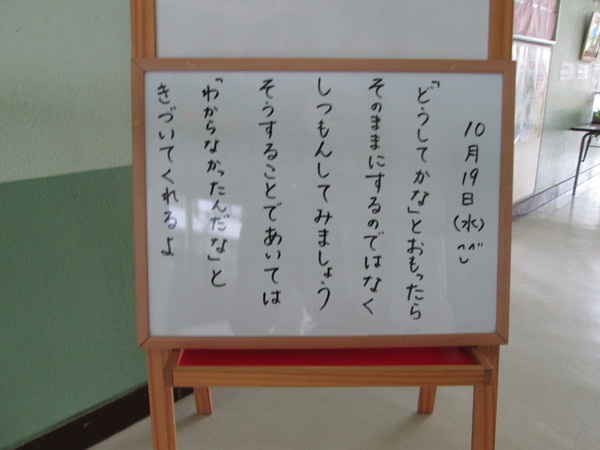 10月19日(水)
「どうしてかな」とおもったら
そのままにするのではなく
しつもんしてみましょう
そうすることであいては
「わからなかったんだな」と
きづいてくれるよ